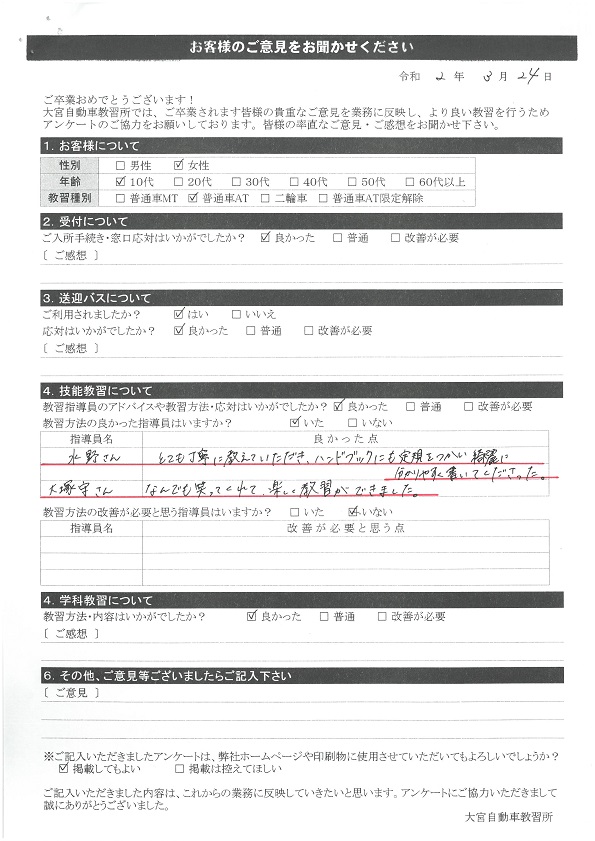 お客様のご意見をお聞かせください
令和 2 年 3 月 24 日
ご卒業おめでとうございます！
大宮自動車教習所では、ご卒業されます皆様の貴重なご意見を業務に反映し、より良い教習を行うため
アンケートのご協力をお願いしております。皆様の率直なご意見・ご感想をお聞かせ下さい。
1. お客様について
性別 □ 男性 ☑ 女性
年齢 ☑ 10代 □ 20代 □ 30代 □ 40代 □ 50代 □ 60代以上
教習種別 □ 普通車MT ☑ 普通車AT □ 二輪車 □ 普通車AT限定解除
2. 受付について
ご入所手続き・窓口応対はいかがでしたか？ ☑ 良かった □ 普通 □ 改善が必要
〔 ご感想 〕
3. 送迎バスについて
ご利用されましたか？ ☑ はい □ いいえ
応対はいかがでしたか？ ☑ 良かった □ 普通 □ 改善が必要
〔 ご感想 〕
4. 技能教習について
教習指導員のアドバイスや教習方法・応対はいかがでしたか？ ☑ 良かった □ 普通 □ 改善が必要
教習方法の良かった指導員はいますか？ ☑ いた □ いない
指導員名 良かった点
水野さん とても丁寧に教えていただき、ハンドブックにも定規をつかい綺麗に
分かりやすく書いてくださった。
大塚守さん なんでも笑ってくれて、楽しく教習ができました。
教習方法の改善が必要と思う指導員はいますか？ □ いた ☑ いない
指導員名 改善が必要と思う点
4. 学科教習について
教習方法・内容はいかがでしたか？ ☑ 良かった □ 普通 □ 改善が必要
〔 ご感想 〕
6. その他、ご意見等ございましたらご記入下さい
〔 ご意見 〕
※ご記入いただきましたアンケートは、弊社ホームページや印刷物に使用させていただいてもよろしいでしょうか？
☑ 掲載してもよい □ 掲載は控えてほしい
ご記入いただきました内容は、これからの業務に反映していきたいと思います。アンケートにご協力いただきまして
誠にありがとうございました。
大宮自動車教習所